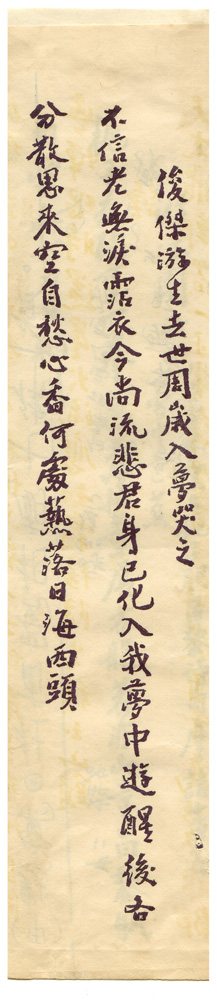 俊傑游生去世周歲入夢哭之
不信老無淚霑衣今尚流悲君身已化入我夢中遊醒後各
分散思來空自愁心香何處爇落日海西頭